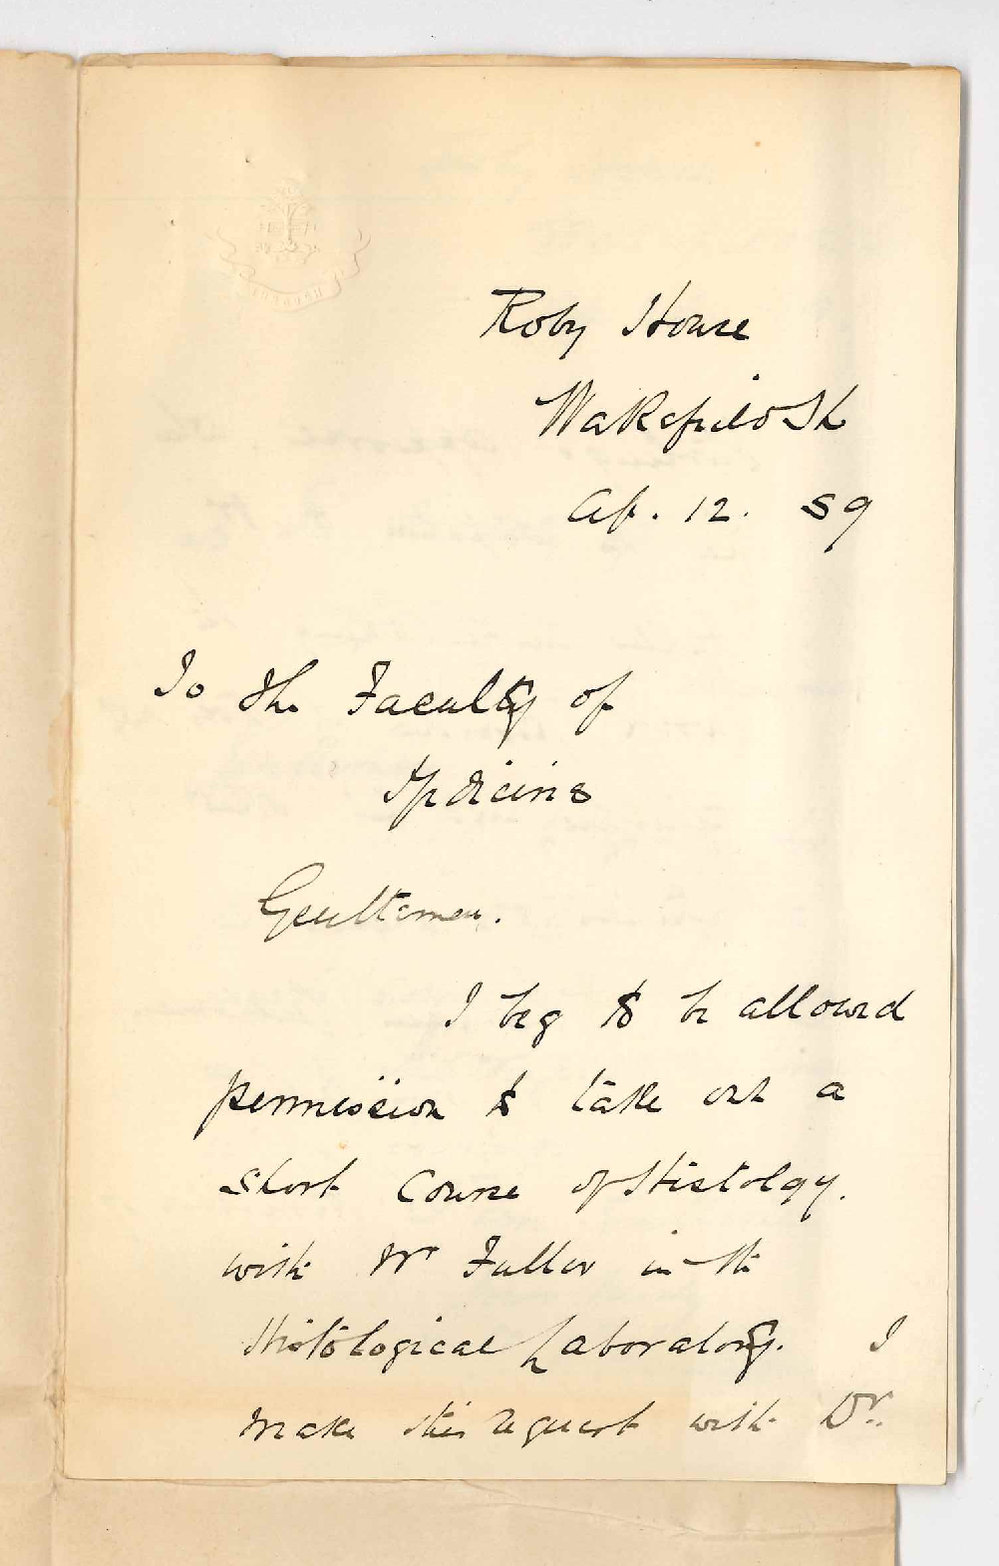 Roby House
Wakefield St
Ap. 12. 89
To the Faculty of
Medicine
Gentlemen.
I beg to be allowed
permission to take out a
short course of Histology.
with Mr Fuller in the
Histological Laboratory. I
make this request with Dr.